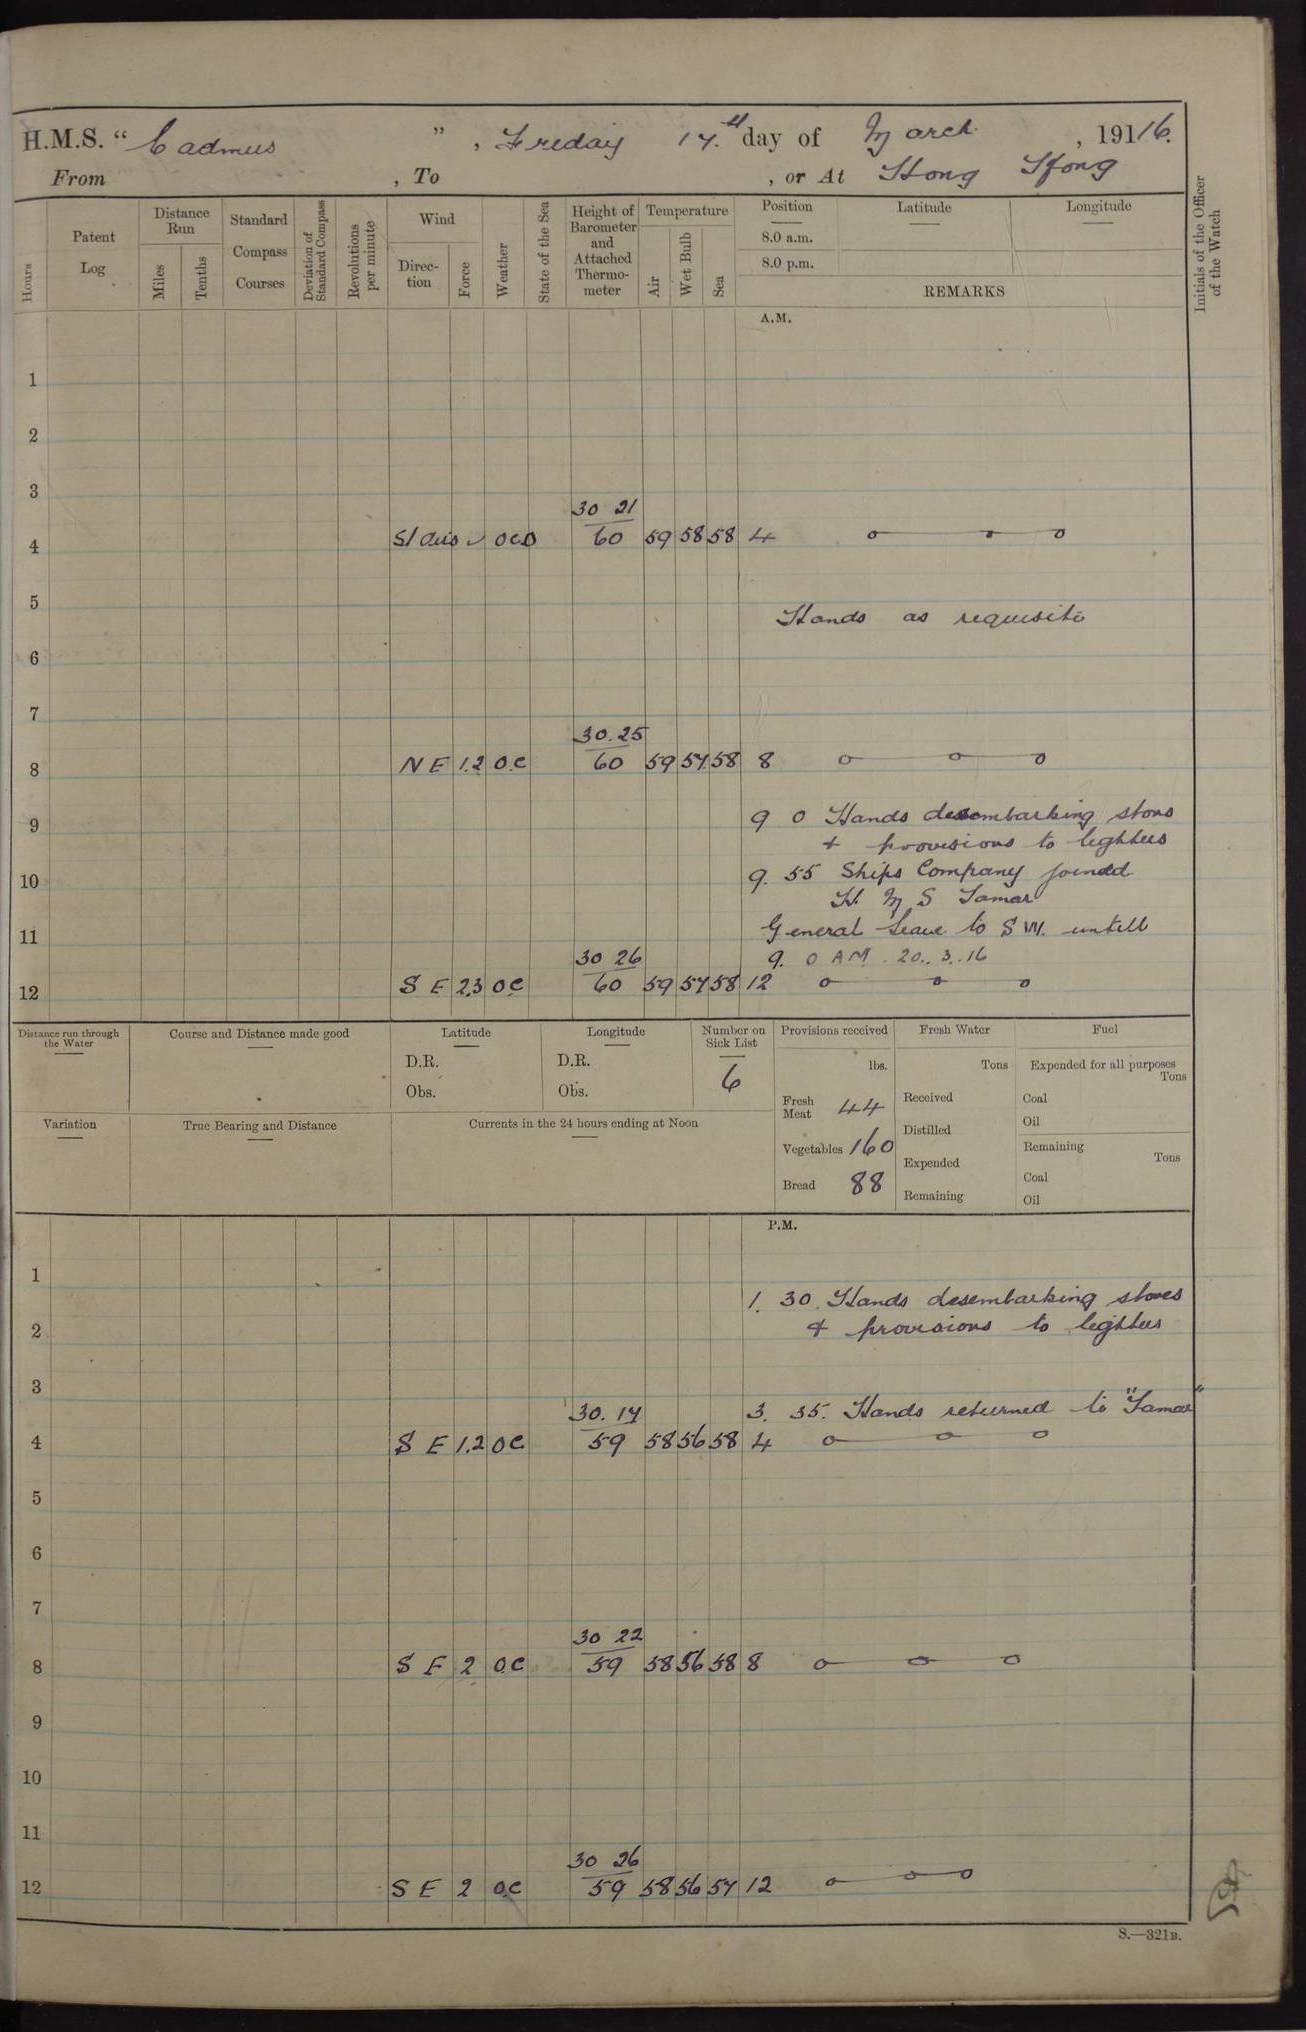 H.M.S. “ Cadmus ” , Friday 17.th day of March , 19116.
From , To , or At Hong Kong
Hours
Patent Log
Distance Run
Miles
Tenths
Standard Compass Courses
Deviation of Standard Compass
Revolutions per minute
Wind
Direction
Force
Weather
State of the Sea
Height of Barometer and Attached Thermometer
Temperature
Air
Wet Bulb
Sea
Position
8.0 a.m.
8.0 p.m.
Latitude
Longitude
REMARKS
Initials of the Officer of the Watch
A.M.
1
2
3
30 21
4 60 59 58 58 4
5 Hands as requisite
6
7
30.25
8 N E 1.2 O.C 60 59 57 58 8
9 9 0 Hands desembarking stores
+ provisions to lighters
10 9. 55 Ships Company joined
H M S Tamar
11 General leave to untill
30 26 9. 0 AM. 20.. 3..16
12 S E 2.3 O.C 60 59 57 58 12
Distance run through the Water
Course and Distance made good
Latitude
D.R.
Obs.
Longitude
D.R.
Obs.
Number on Sick List
6
Provisions received
lbs.
Fresh Meat 44
Vegetables 160
Bread 88
Fresh Water
Tons
Received
Distilled
Expended
Remaining
Fuel
Expended for all purposes
Tons
Coal
Oil
Remaining
Tons
Coal
Oil
Variation
True Bearing and Distance
Currents in the 24 hours ending at Noon
P.M.
1
1. 30. Hands desembarking stores
2 + provisions to lighters
3
30. 17 3. 35. Hands returned to "Tamar"
4 S E 1.2 O C 59 58 56 58 4
5
6
7
30 22
8 S E 2 O.C 59 58 56 58 8
9
10
11
30 26
12 S E 2 O.C 59 58 56 57 12
S.—321B.